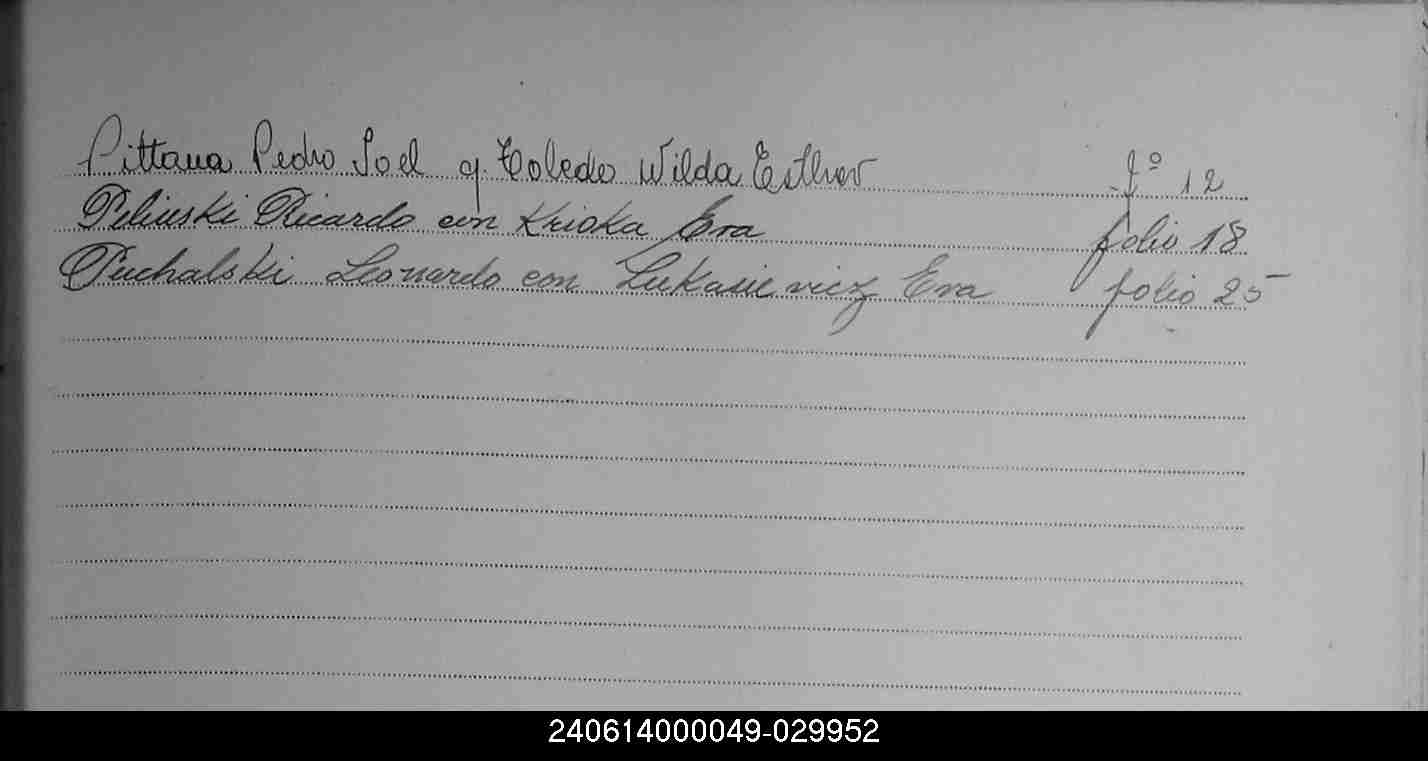 Pittana Pedro Joel y Toledo Wilda Esther fº 12
Pelinski Ricardo con Krioka Eva folio 18
Puchalski Leonardo con Lukasievicz Eva folio 25
240614000049-029952